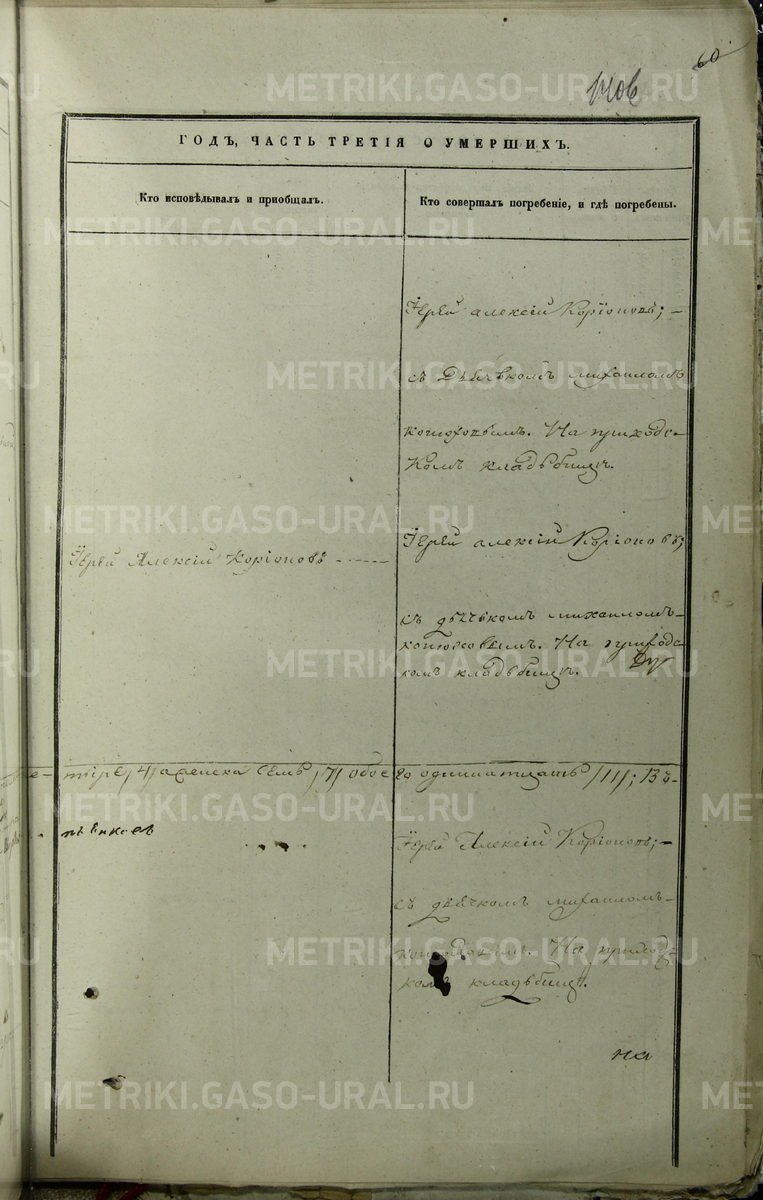 60
ГОДЪ, ЧАСТЬ ТРЕТІЯ О УМЕРШИХЪ.
Кто исповѣдывалъ и пріобщалъ.
Кто совершалъ погребеніе, и гдѣ погребены.
Іерей алексій Коріоновъ; —
съ дьячкомъ михаиломъ
На приходс-
комъ кладьбищѣ.
Іерей Алексій Коріоновъ
Іерей алексій Коріоновъ;
съ дьячкомъ михаиломъ-
конюховымъ. На приходс-
комъ кладьбищѣ.
тыре /4/ а женска Семь /7/ обое го одиннатцать /11/; Въ-
Іерей Алексій Коріоновъ; —
съ дьячкомъ михаиломъ-
На приход-
комъ кладьбищѣ.
на
METRIKI.GASO-URAL.RU